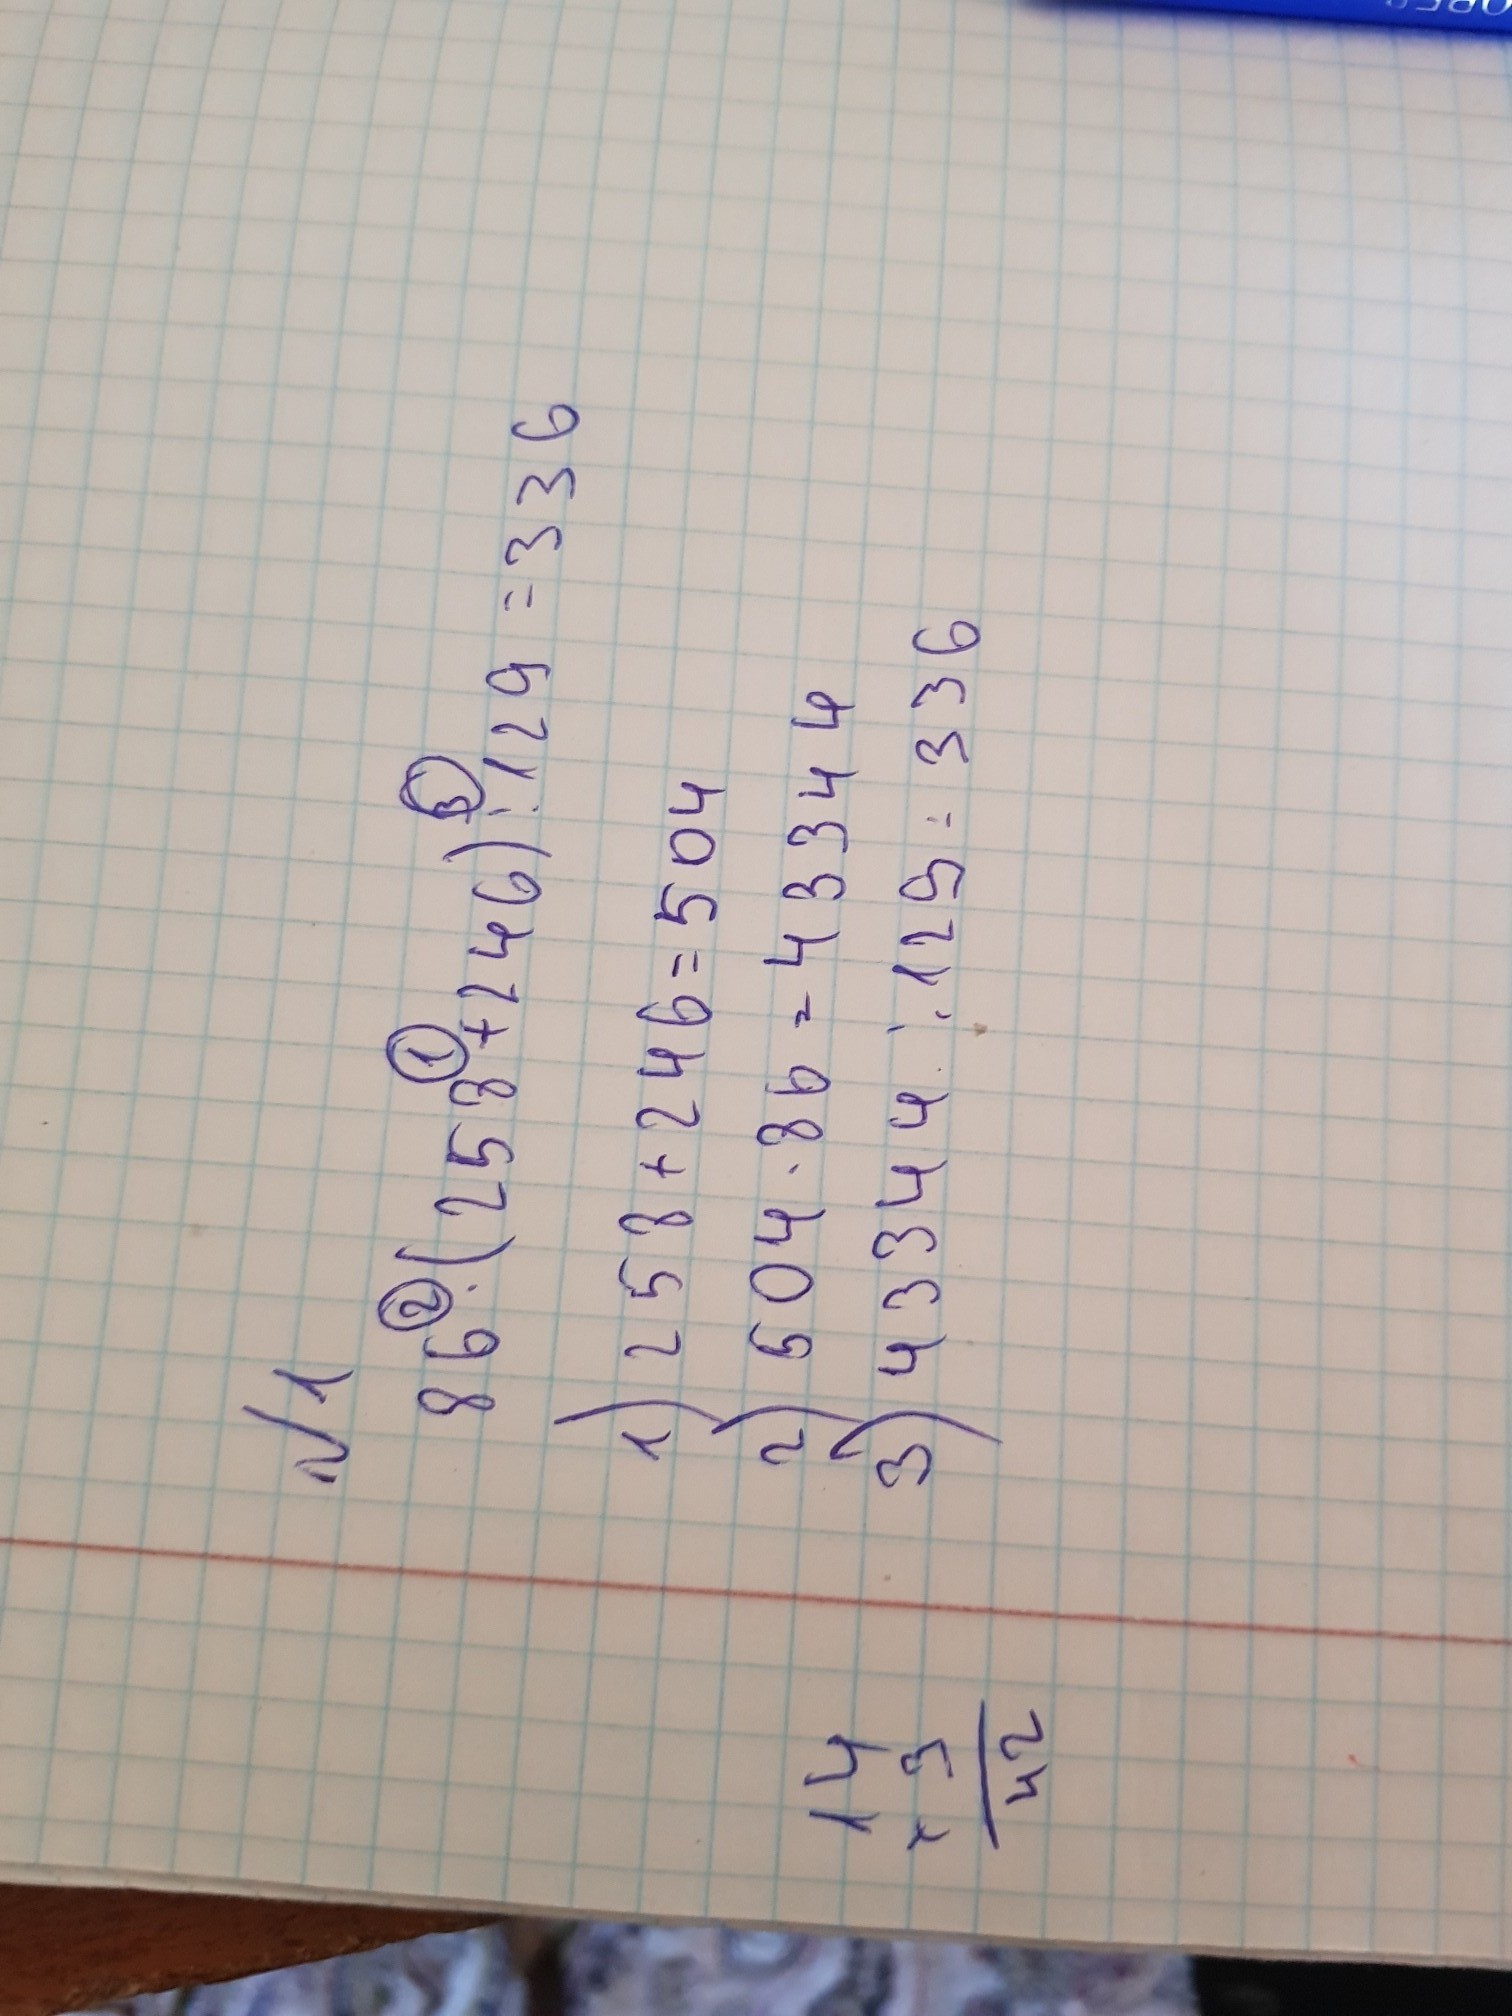 N 1
86 · (258 + 246) : 129 = 336
② ① ③
1) 258 + 246 = 504
2) 504 · 86 = 43344
3) 43344 : 129 = 336
14
× 3
42